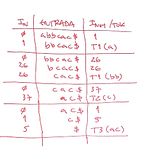 IN ENTRADA INH/TOK
Ø abbcac$ 1
1 bbcac$ T1(a)
Ø bbcac$ 26
26 bcac$ 26
26 cac$ T1(bb)
Ø cac$ 37
37 ac$ T2(c)
Ø ac$ 1
1 c$ 5
5 $ T3(ac)